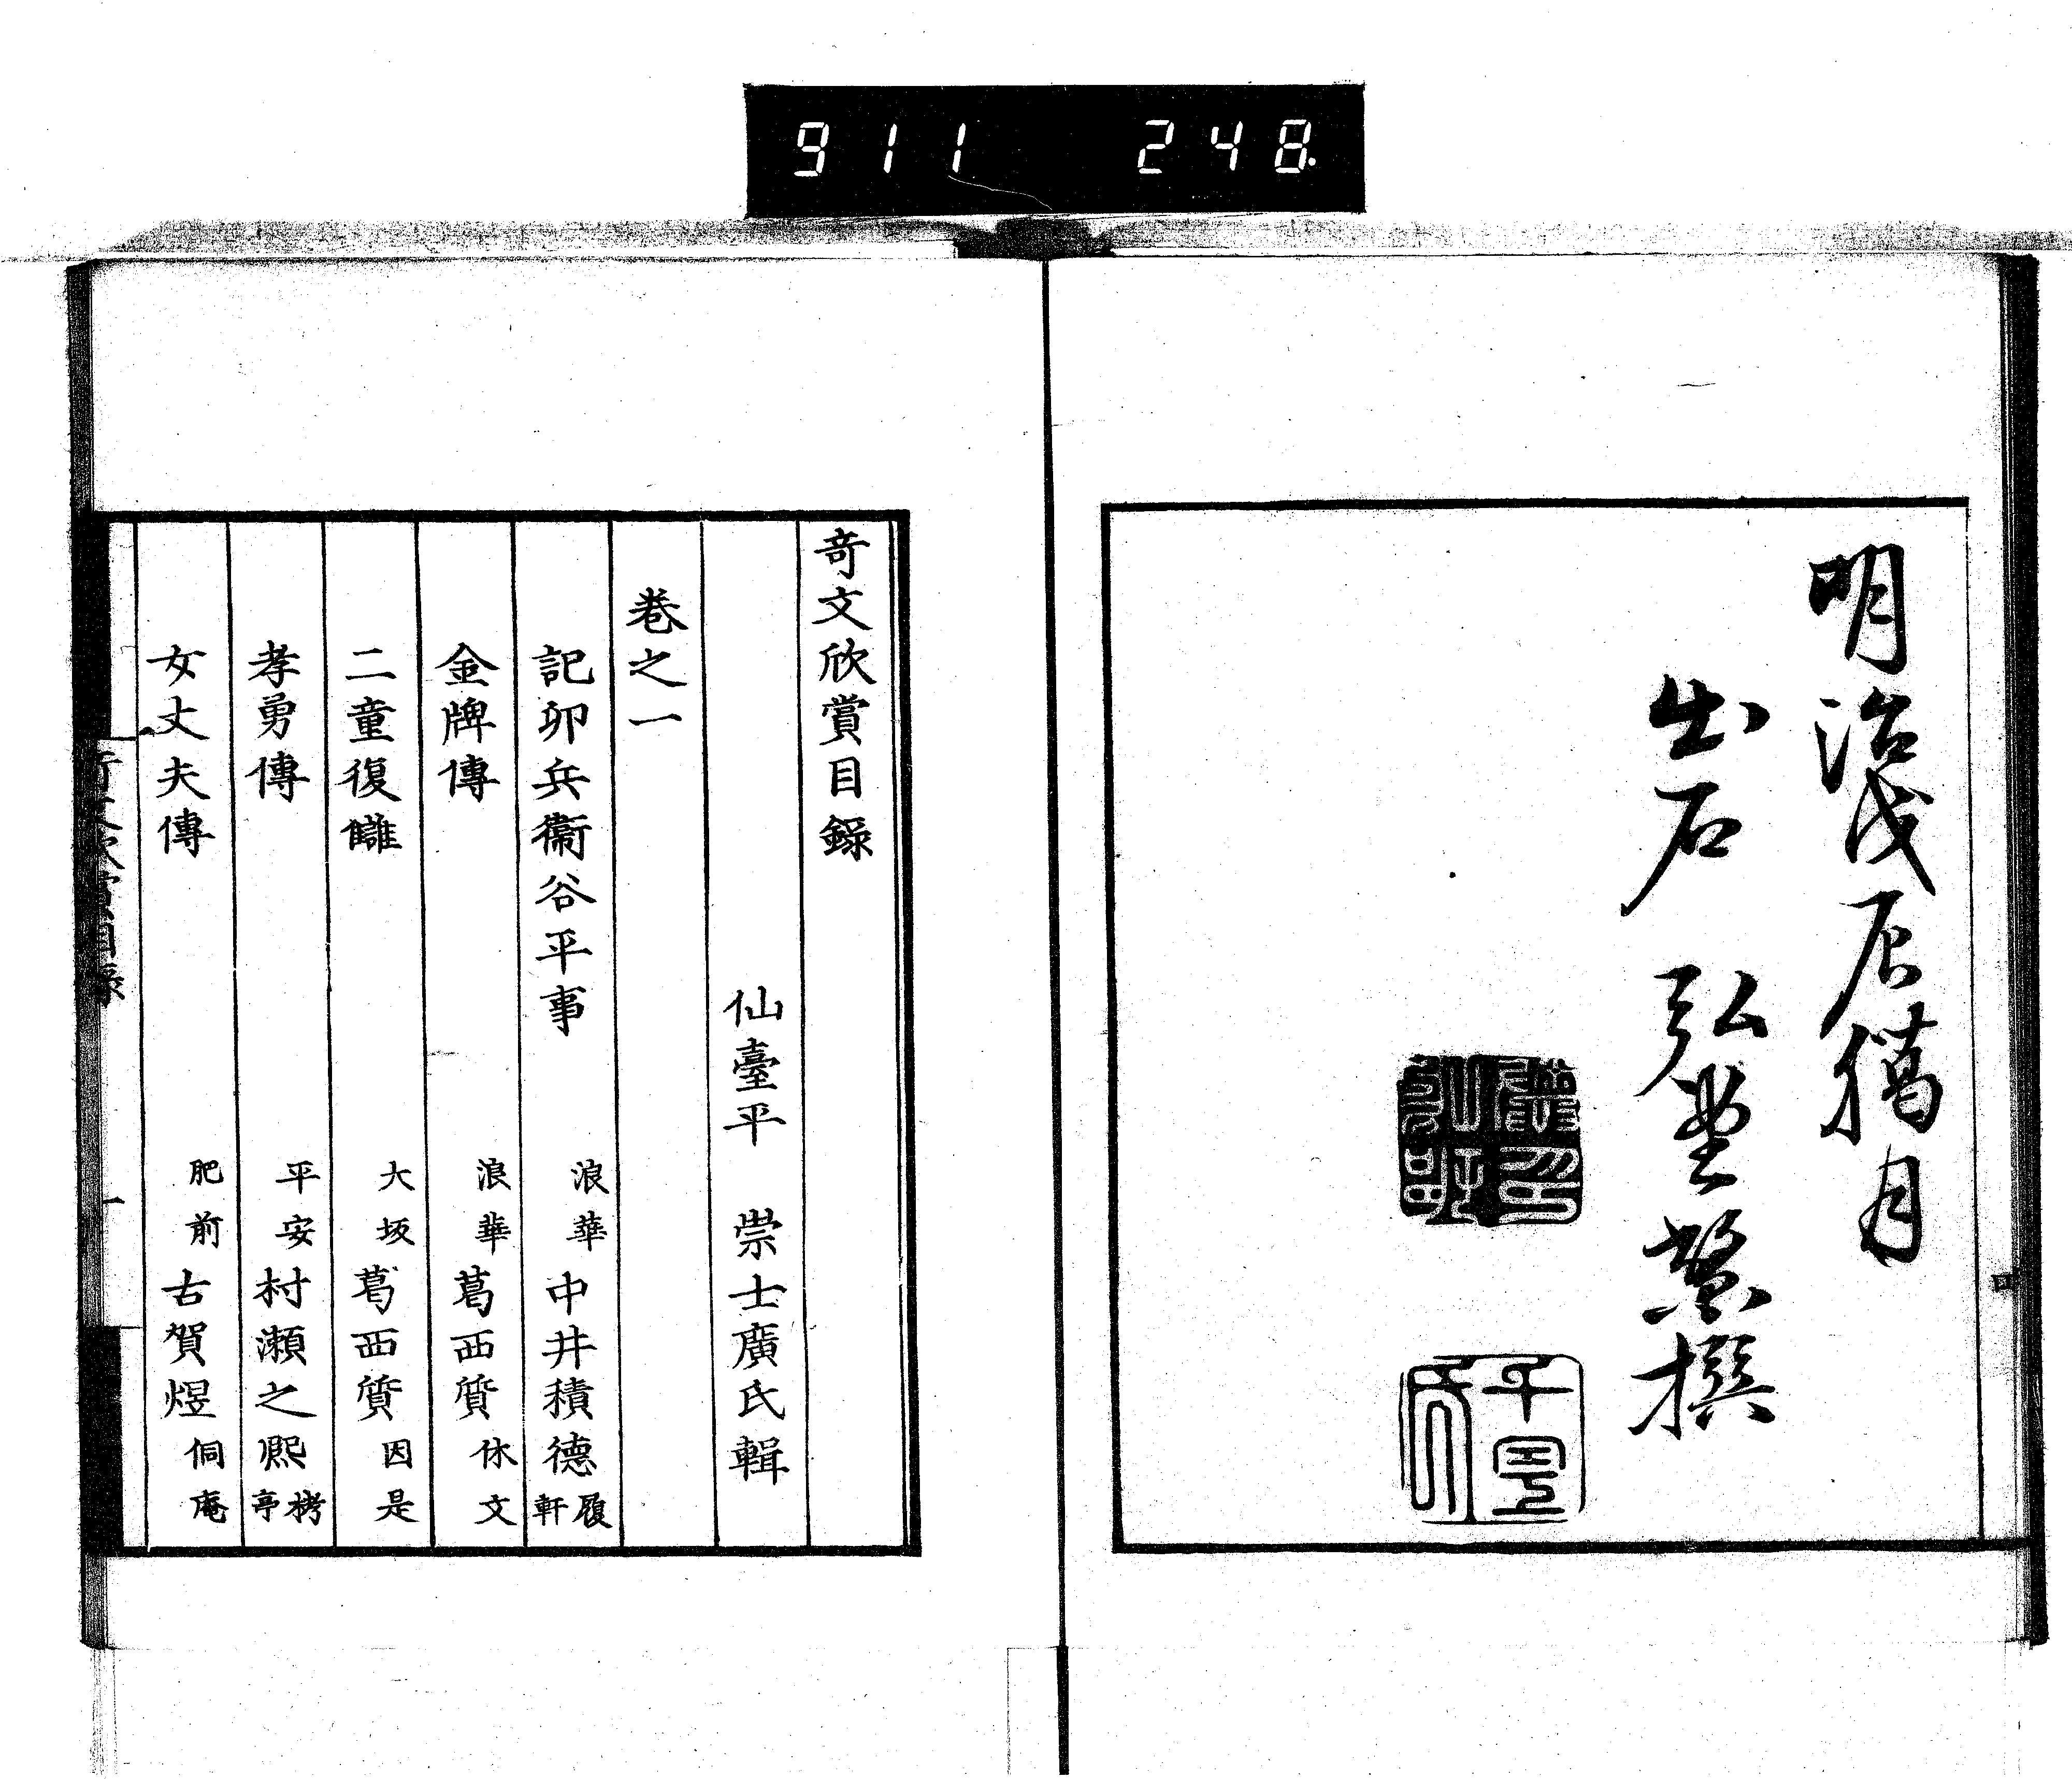 911 248
明治戊辰橘月
出石 弘 撰
奇文欣賞目錄
仙臺平 崇士廣氏輯
卷之一
記卯兵衞谷平事 浪華中井積德履軒
金牌傳 浪華葛西質休文
二童復讎 大坂葛西質因是
孝勇傳 平安村瀬之熙栲亭
女丈夫傳 肥前古賀煜侗庵
奇文欣賞目錄 一